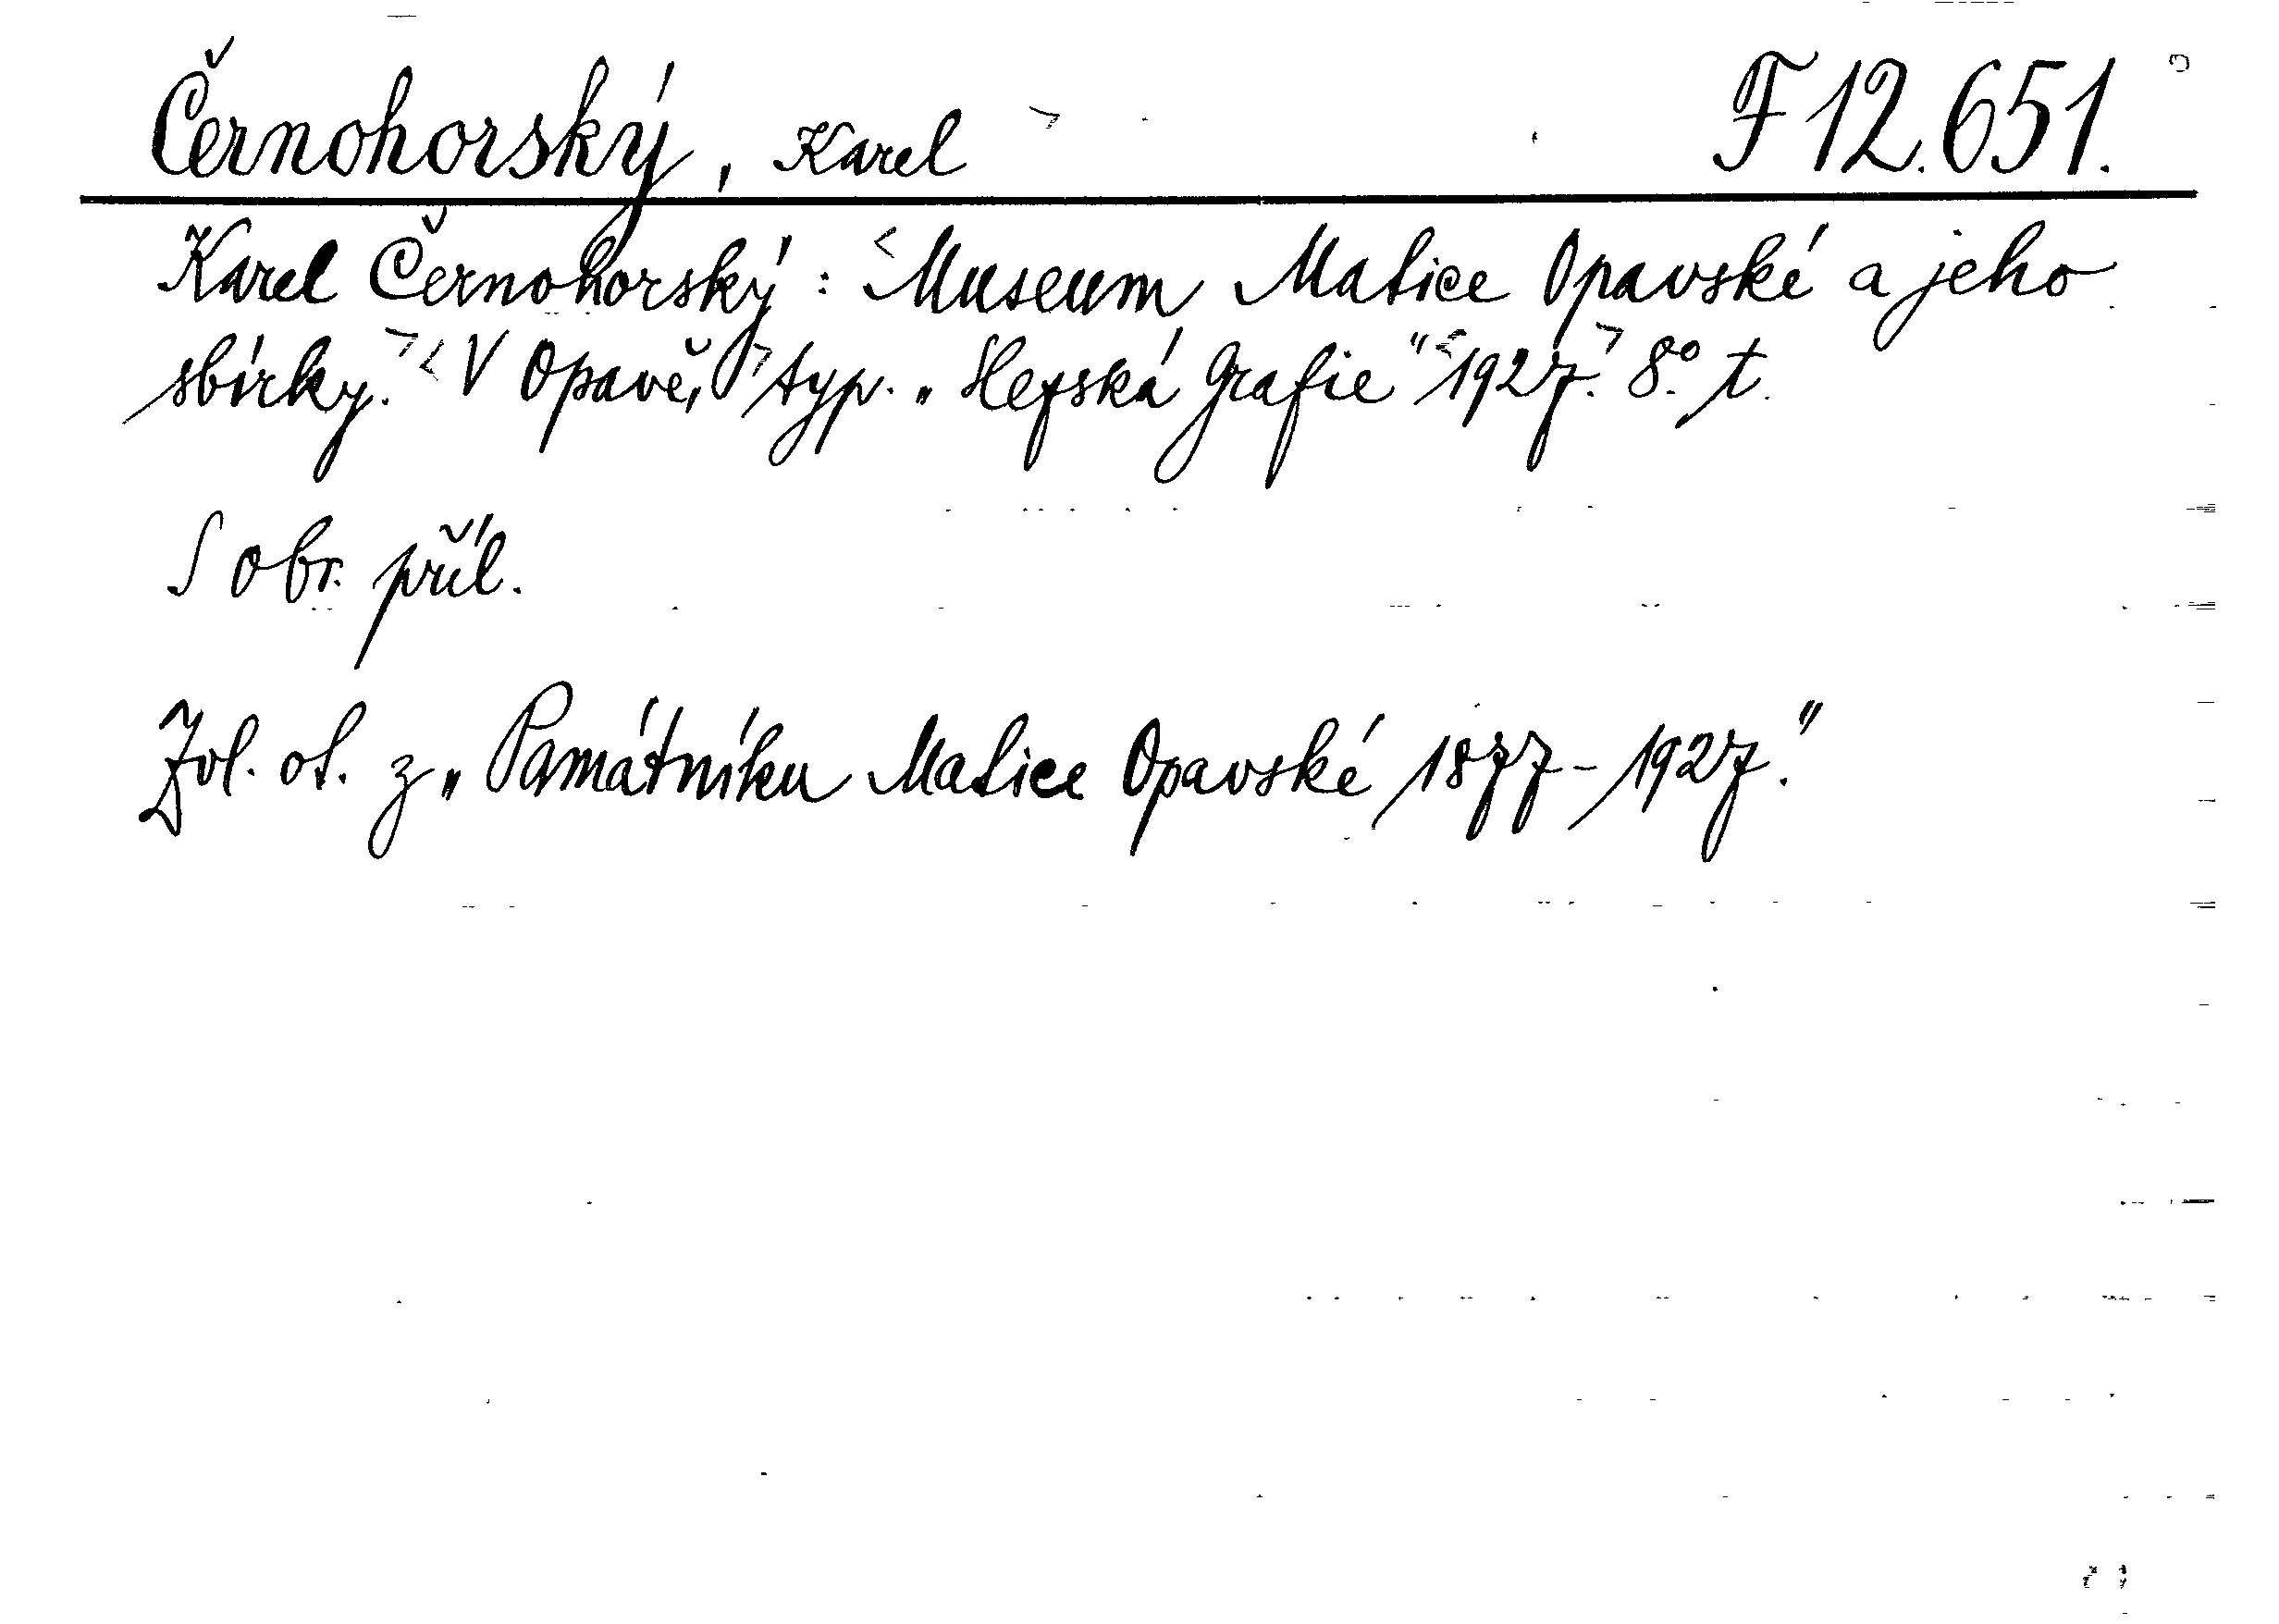 Černohorský, Karel F 12.651.
Karel Černohorský: Museum Matice Opavské a jeho
sbírky. V Opavě, typ. „Slezská Grafie" 1927. 8° t.
S obr. příl.
Zvl. ot. z „Památníku Matice Opavské 1877-1927."